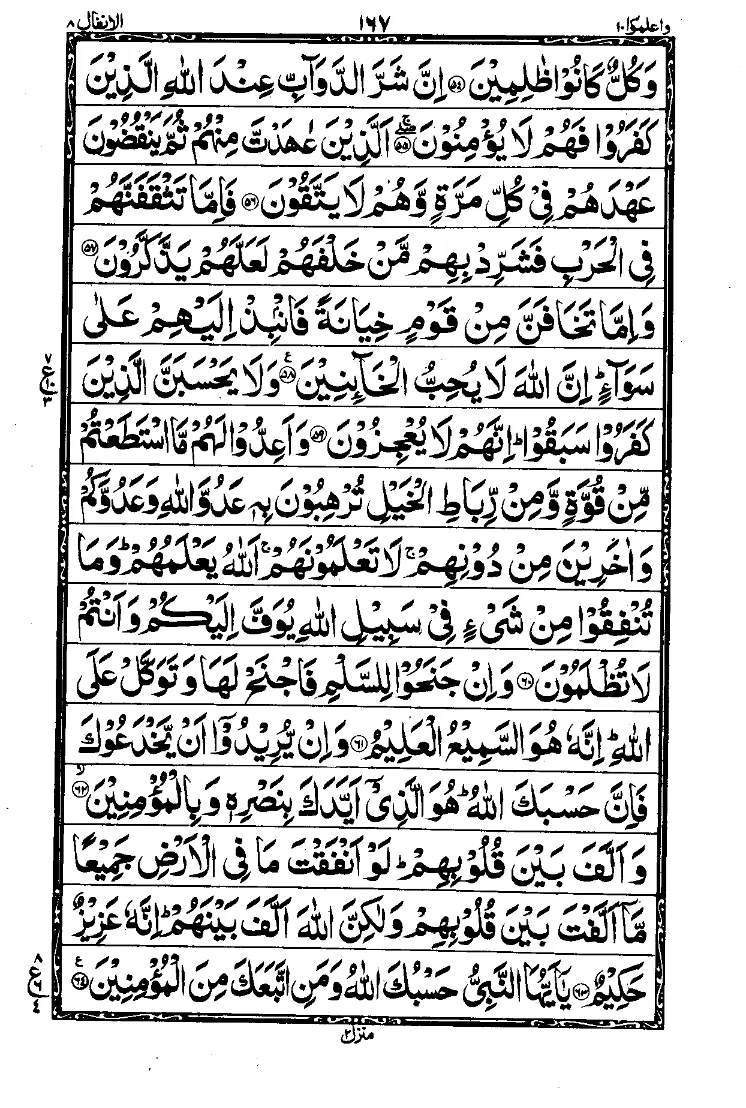 واعلموا ١٠ ١٦٧ الانفال ٨
وَكُلٌّ كَانُوْا ظٰلِمِيْنَ ﴿۵۴﴾ اِنَّ شَرَّ الدَّوَآبِّ عِنْدَ اللّٰهِ الَّذِيْنَ
كَفَرُوْا فَهُمْ لَا يُؤْمِنُوْنَ ﴿۵۵﴾ۖۚ اَلَّذِيْنَ عٰهَدْتَّ مِنْهُمْ ثُمَّ يَنْقُضُوْنَ
عَهْدَهُمْ فِيْ كُلِّ مَرَّةٍ وَّهُمْ لَا يَتَّقُوْنَ ﴿۵۶﴾ فَاِمَّا تَثْقَفَنَّهُمْ
فِي الْحَرْبِ فَشَرِّدْ بِهِمْ مَّنْ خَلْفَهُمْ لَعَلَّهُمْ يَذَّكَّرُوْنَ ﴿۵۷﴾
وَاِمَّا تَخَافَنَّ مِنْ قَوْمٍ خِيَانَةً فَانْۢبِذْ اِلَيْهِمْ عَلٰى
سَوَآءٍ ؕ اِنَّ اللّٰهَ لَا يُحِبُّ الْخَآئِنِيْنَ ﴿۵۸﴾ع وَلَا يَحْسَبَنَّ الَّذِيْنَ
٧ ع ١٠ ٣
كَفَرُوْا سَبَقُوْا ؕ اِنَّهُمْ لَا يُعْجِزُوْنَ ﴿۵۹﴾ وَاَعِدُّوْا لَهُمْ مَّا اسْتَطَعْتُمْ
مِّنْ قُوَّةٍ وَّمِنْ رِّبَاطِ الْخَيْلِ تُرْهِبُوْنَ بِهٖ عَدُوَّ اللّٰهِ وَعَدُوَّكُمْ
وَاٰخَرِيْنَ مِنْ دُوْنِهِمْ ۚ لَا تَعْلَمُوْنَهُمْ ۚ اَللّٰهُ يَعْلَمُهُمْ ؕ وَمَا
تُنْفِقُوْا مِنْ شَيْءٍ فِيْ سَبِيْلِ اللّٰهِ يُوَفَّ اِلَيْكُمْ وَاَنْتُمْ
لَا تُظْلَمُوْنَ ﴿۶۰﴾ وَاِنْ جَنَحُوْا لِلسَّلْمِ فَاجْنَحْ لَهَا وَتَوَكَّلْ عَلَى
اللّٰهِ ؕ اِنَّهٗ هُوَ السَّمِيْعُ الْعَلِيْمُ ﴿۶۱﴾ وَاِنْ يُّرِيْدُوْۤا اَنْ يَّخْدَعُوْكَ
فَاِنَّ حَسْبَكَ اللّٰهُ ؕ هُوَ الَّذِيْۤ اَيَّدَكَ بِنَصْرِهٖ وَبِالْمُؤْمِنِيْنَ ﴿۶۲﴾ۙ
وَاَلَّفَ بَيْنَ قُلُوْبِهِمْ ؕ لَوْ اَنْفَقْتَ مَا فِي الْاَرْضِ جَمِيْعًا
مَّاۤ اَلَّفْتَ بَيْنَ قُلُوْبِهِمْ وَلٰكِنَّ اللّٰهَ اَلَّفَ بَيْنَهُمْ ؕ اِنَّهٗ عَزِيْزٌ
حَكِيْمٌ ﴿۶۳﴾ يٰۤاَيُّهَا النَّبِيُّ حَسْبُكَ اللّٰهُ وَمَنِ اتَّبَعَكَ مِنَ الْمُؤْمِنِيْنَ ﴿۶۴﴾ع
٨ ع ٦ ٤
منزل ٢